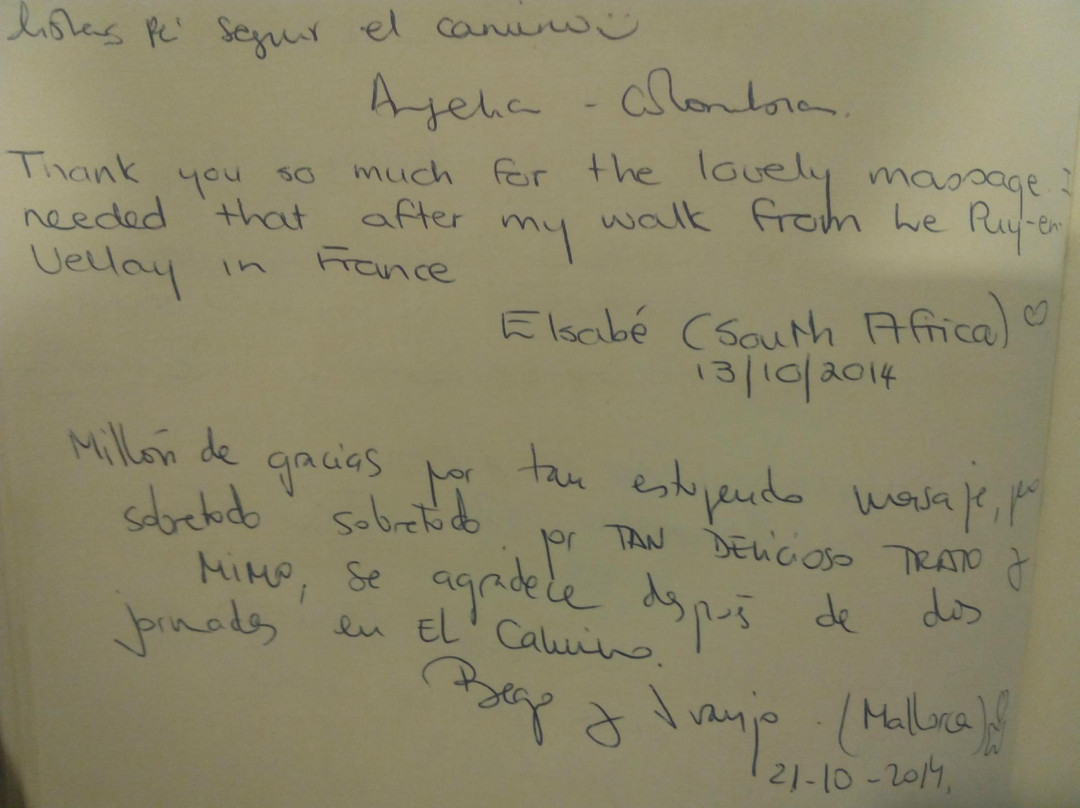 listas pa' seguir el camino
Angelica - Colombia.
Thank you so much for the lovely massage. I
needed that after my walk from Le Puy-en
Vellay in France
Elsabé (South Africa) ♡
13/10/2014
Millón de gracias por tan estupendo masaje,
sobretodo sobretodo por TAN DELICIOSO TRATO y
MIMO, se agradece después de dos
jornadas en El Camino.
Bego y (Mallorca)
21-10-2014.